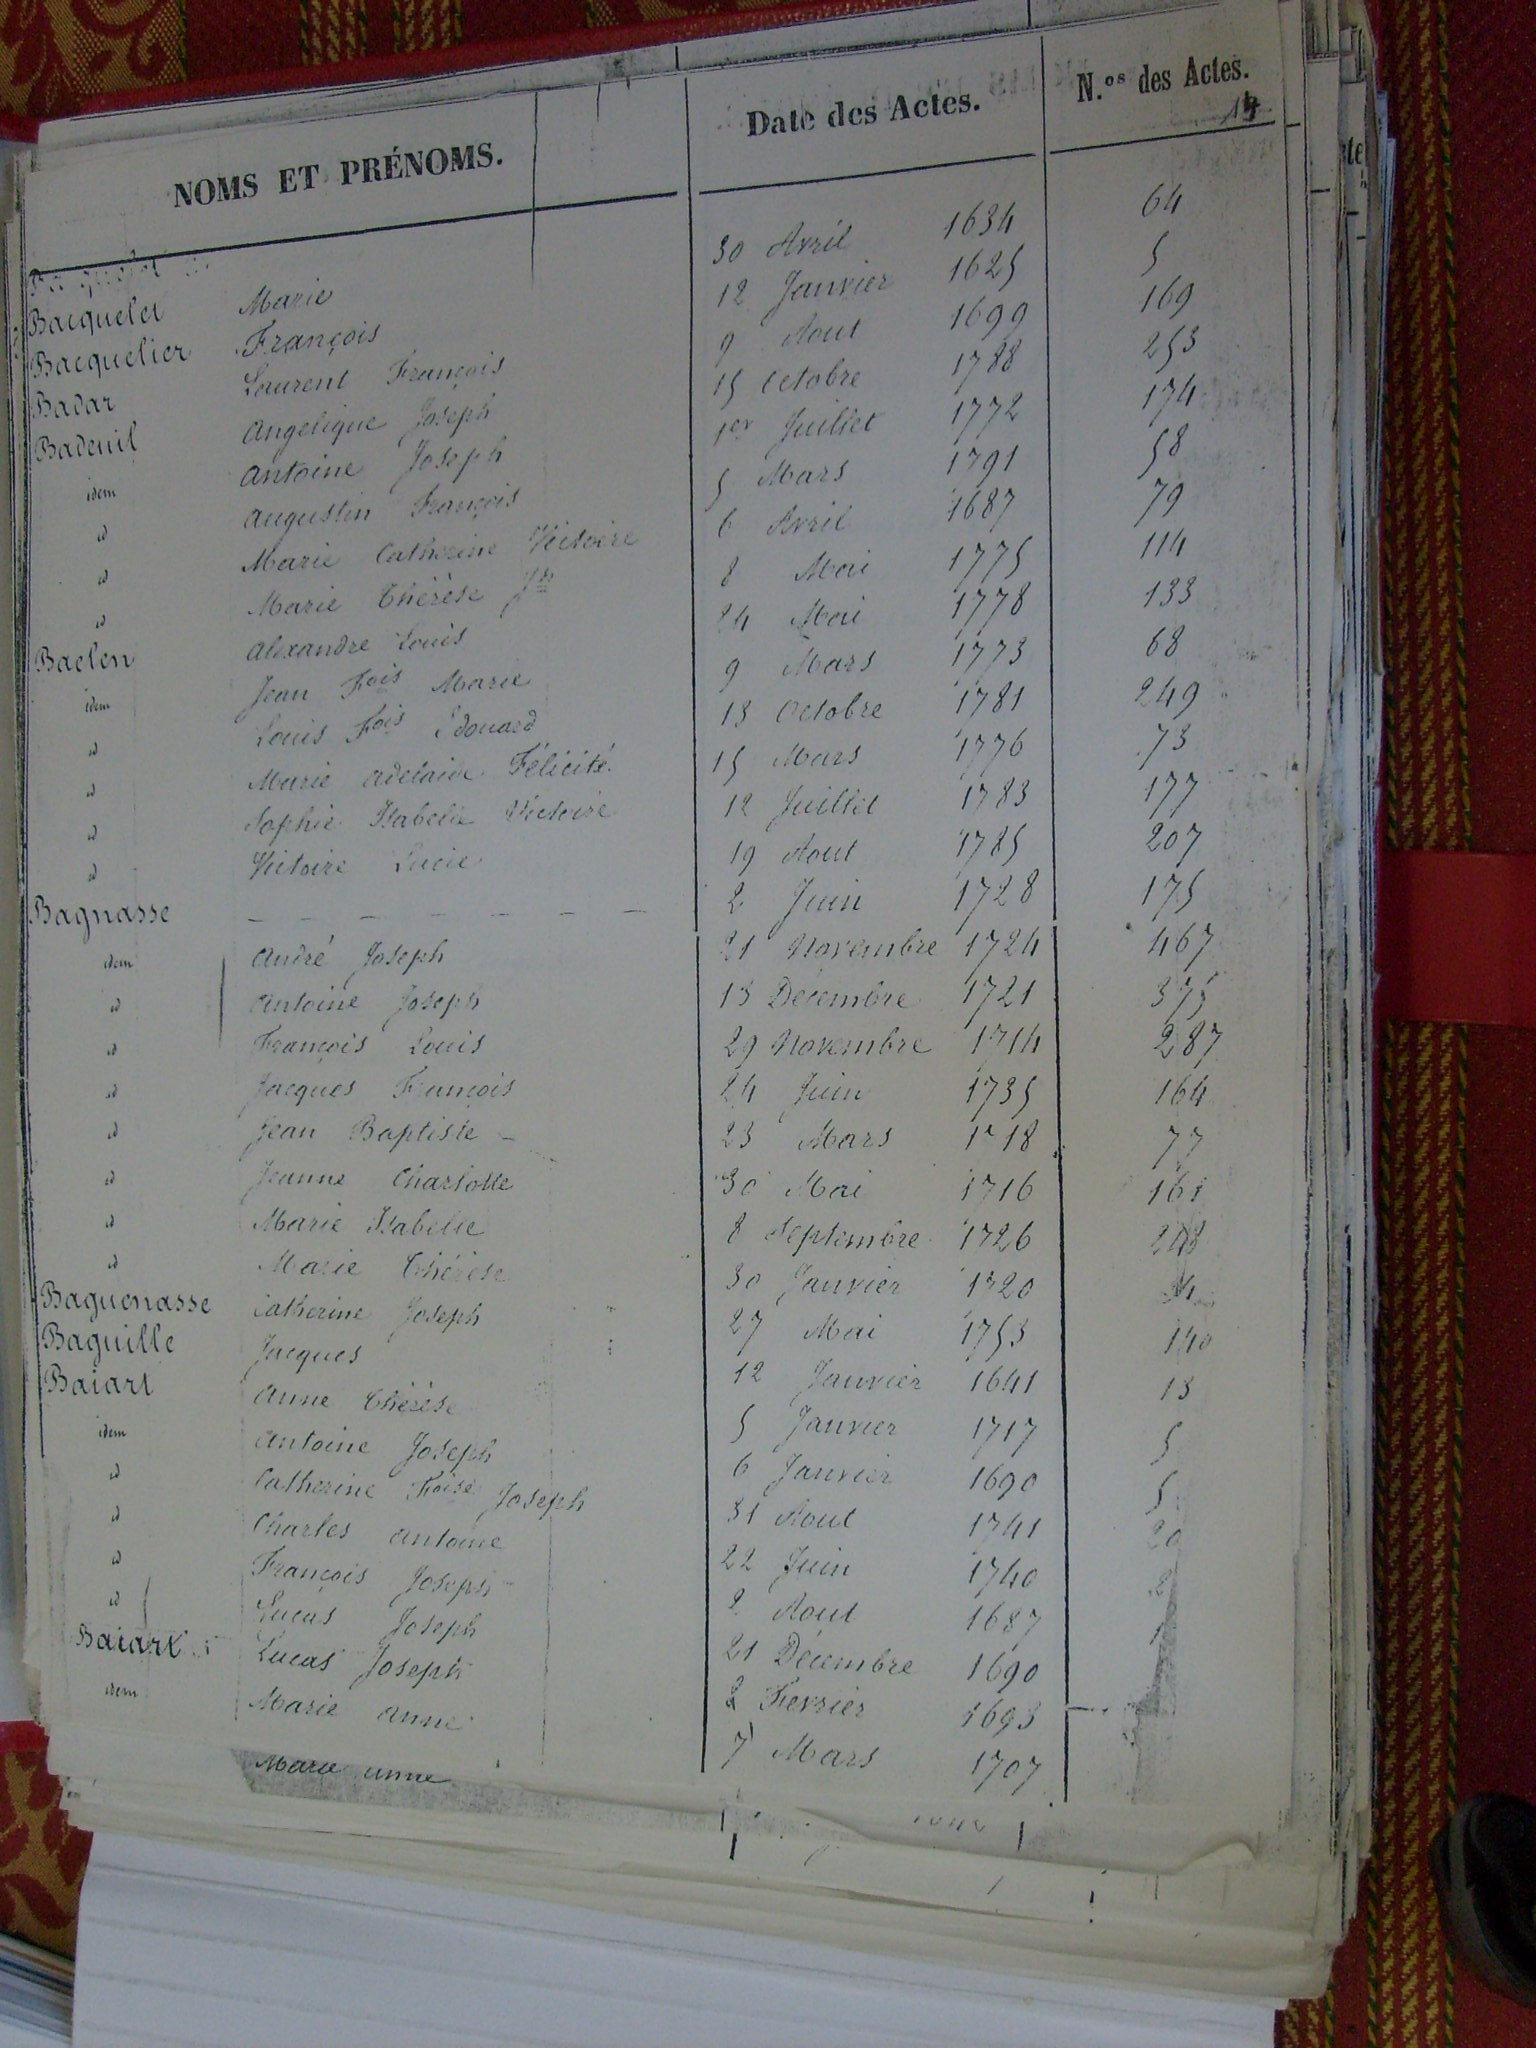 NOMS ET PRÉNOMS. Date des Actes. N.os des Actes.
Bacquelet Marie 30 Avril 1634 64
Bacquelier François 12 Janvier 1625 5
Badar Laurent François 9 Aout 1699 169
Badeuil Angelique Joseph 15 Octobre 1788 253
idem Antoine Joseph 1er Juillet 1772 174
id Augustin François 5 Mars 1791 58
id Marie Catherine Victoire 6 Avril 1687 79
id Marie Thérèse Jh 8 Mai 1775 114
Baelen Alexandre Louis 24 Mai 1778 133
idem Jean Fois Marie 9 Mars 1773 68
id Louis Fois Edouard 13 Octobre 1781 249
id Marie Adelaide Félicité 15 Mars 1776 73
id Sophie Isabelle Victoire 12 Juillet 1783 177
id Victoire Lucie 19 Aout 1785 207
Bagnasse — — — — — — — 2 Juin 1728 175
idem André Joseph 21 Novembre 1724 467
id Antoine Joseph 13 Decembre 1721 375
id François Louis 29 Novembre 1714 287
id Jacques François 24 Juin 1735 164
id Jean Baptiste 23 Mars 1718 77
id Jeanne Charlotte 30 Mai 1716 161
id Marie Isabelle 8 Septembre 1726
id Marie Thérèse 30 Janvier 1720
Baguenasse Catherine Joseph 27 Mai 1753 140
Baguille Jacques 12 Janvier 1641 13
Baiart Anne Thérèse 5 Janvier 1717 5
idem Antoine Joseph 6 Janvier 1690 5
id Catherine Foise Joseph 31 Aout 1741
id Charles antoine 22 Juin 1740
id François Joseph 2 Aout 1687
id Lucas Joseph 21 Decembre 1690
Baiart Lucas Joseph 2 Fevrier 1693
idem Marie anne 7 Mars 1707
Marie anne